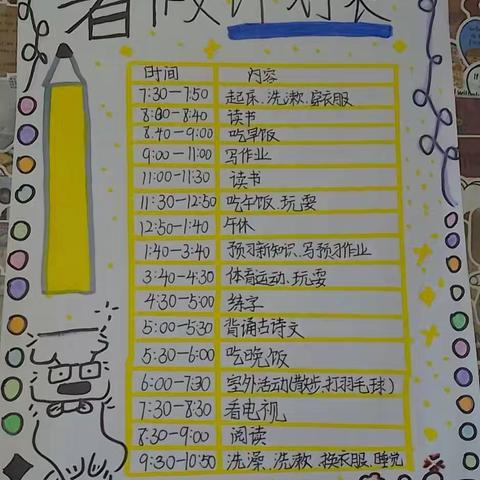 暑假计划表
时间 内容
7:30—7:50 起床、洗漱、穿衣服
8:00—8:40 读书
8:40—9:00 吃早饭
9:00—11:00 写作业
11:00—11:30 读书
11:30—12:50 吃午饭、玩耍
12:50—1:40 午休
1:40—3:40 预习新知识、写预习作业
3:40—4:30 体育运动、玩耍
4:30—5:00 练字
5:00—5:30 背诵古诗文
5:30—6:00 吃晚饭
6:00—7:30 室外活动(散步、打羽毛球)
7:30—8:30 看电视
8:30—9:00 阅读
9:30—10:50 洗澡、洗漱、换衣服、睡觉